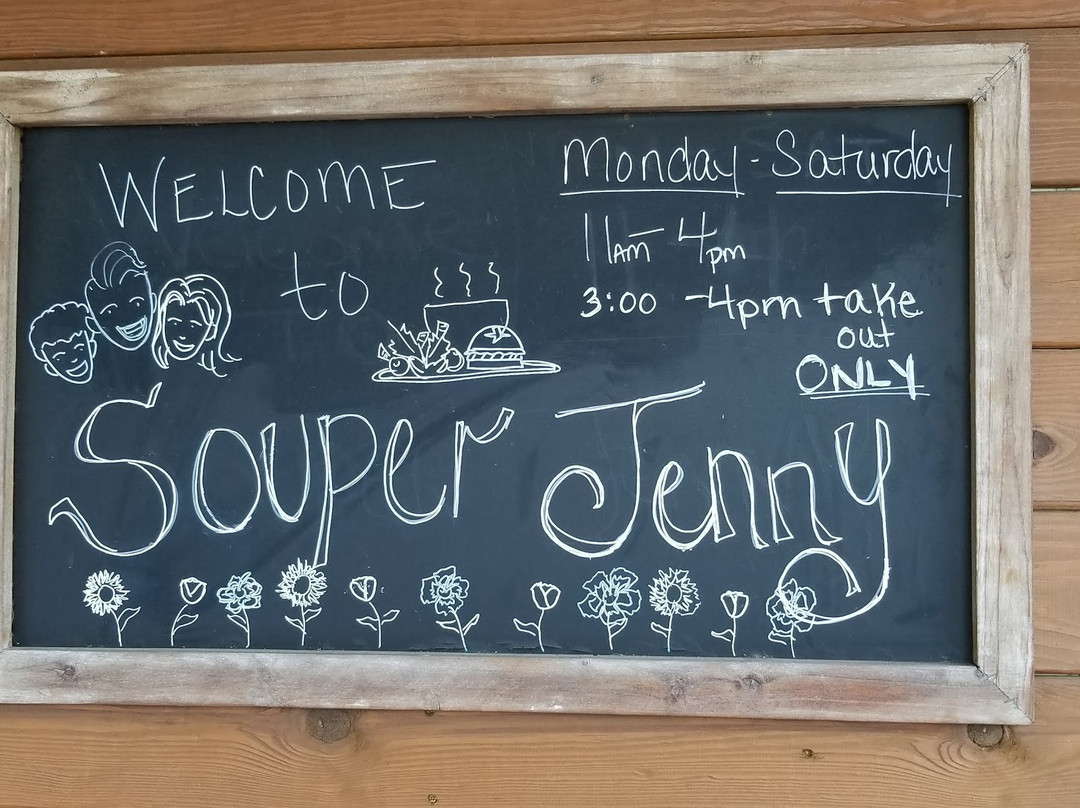 WELCOME
to
Souper Jenny
Monday - Saturday
11am - 4pm
3:00 - 4pm take
out
ONLY